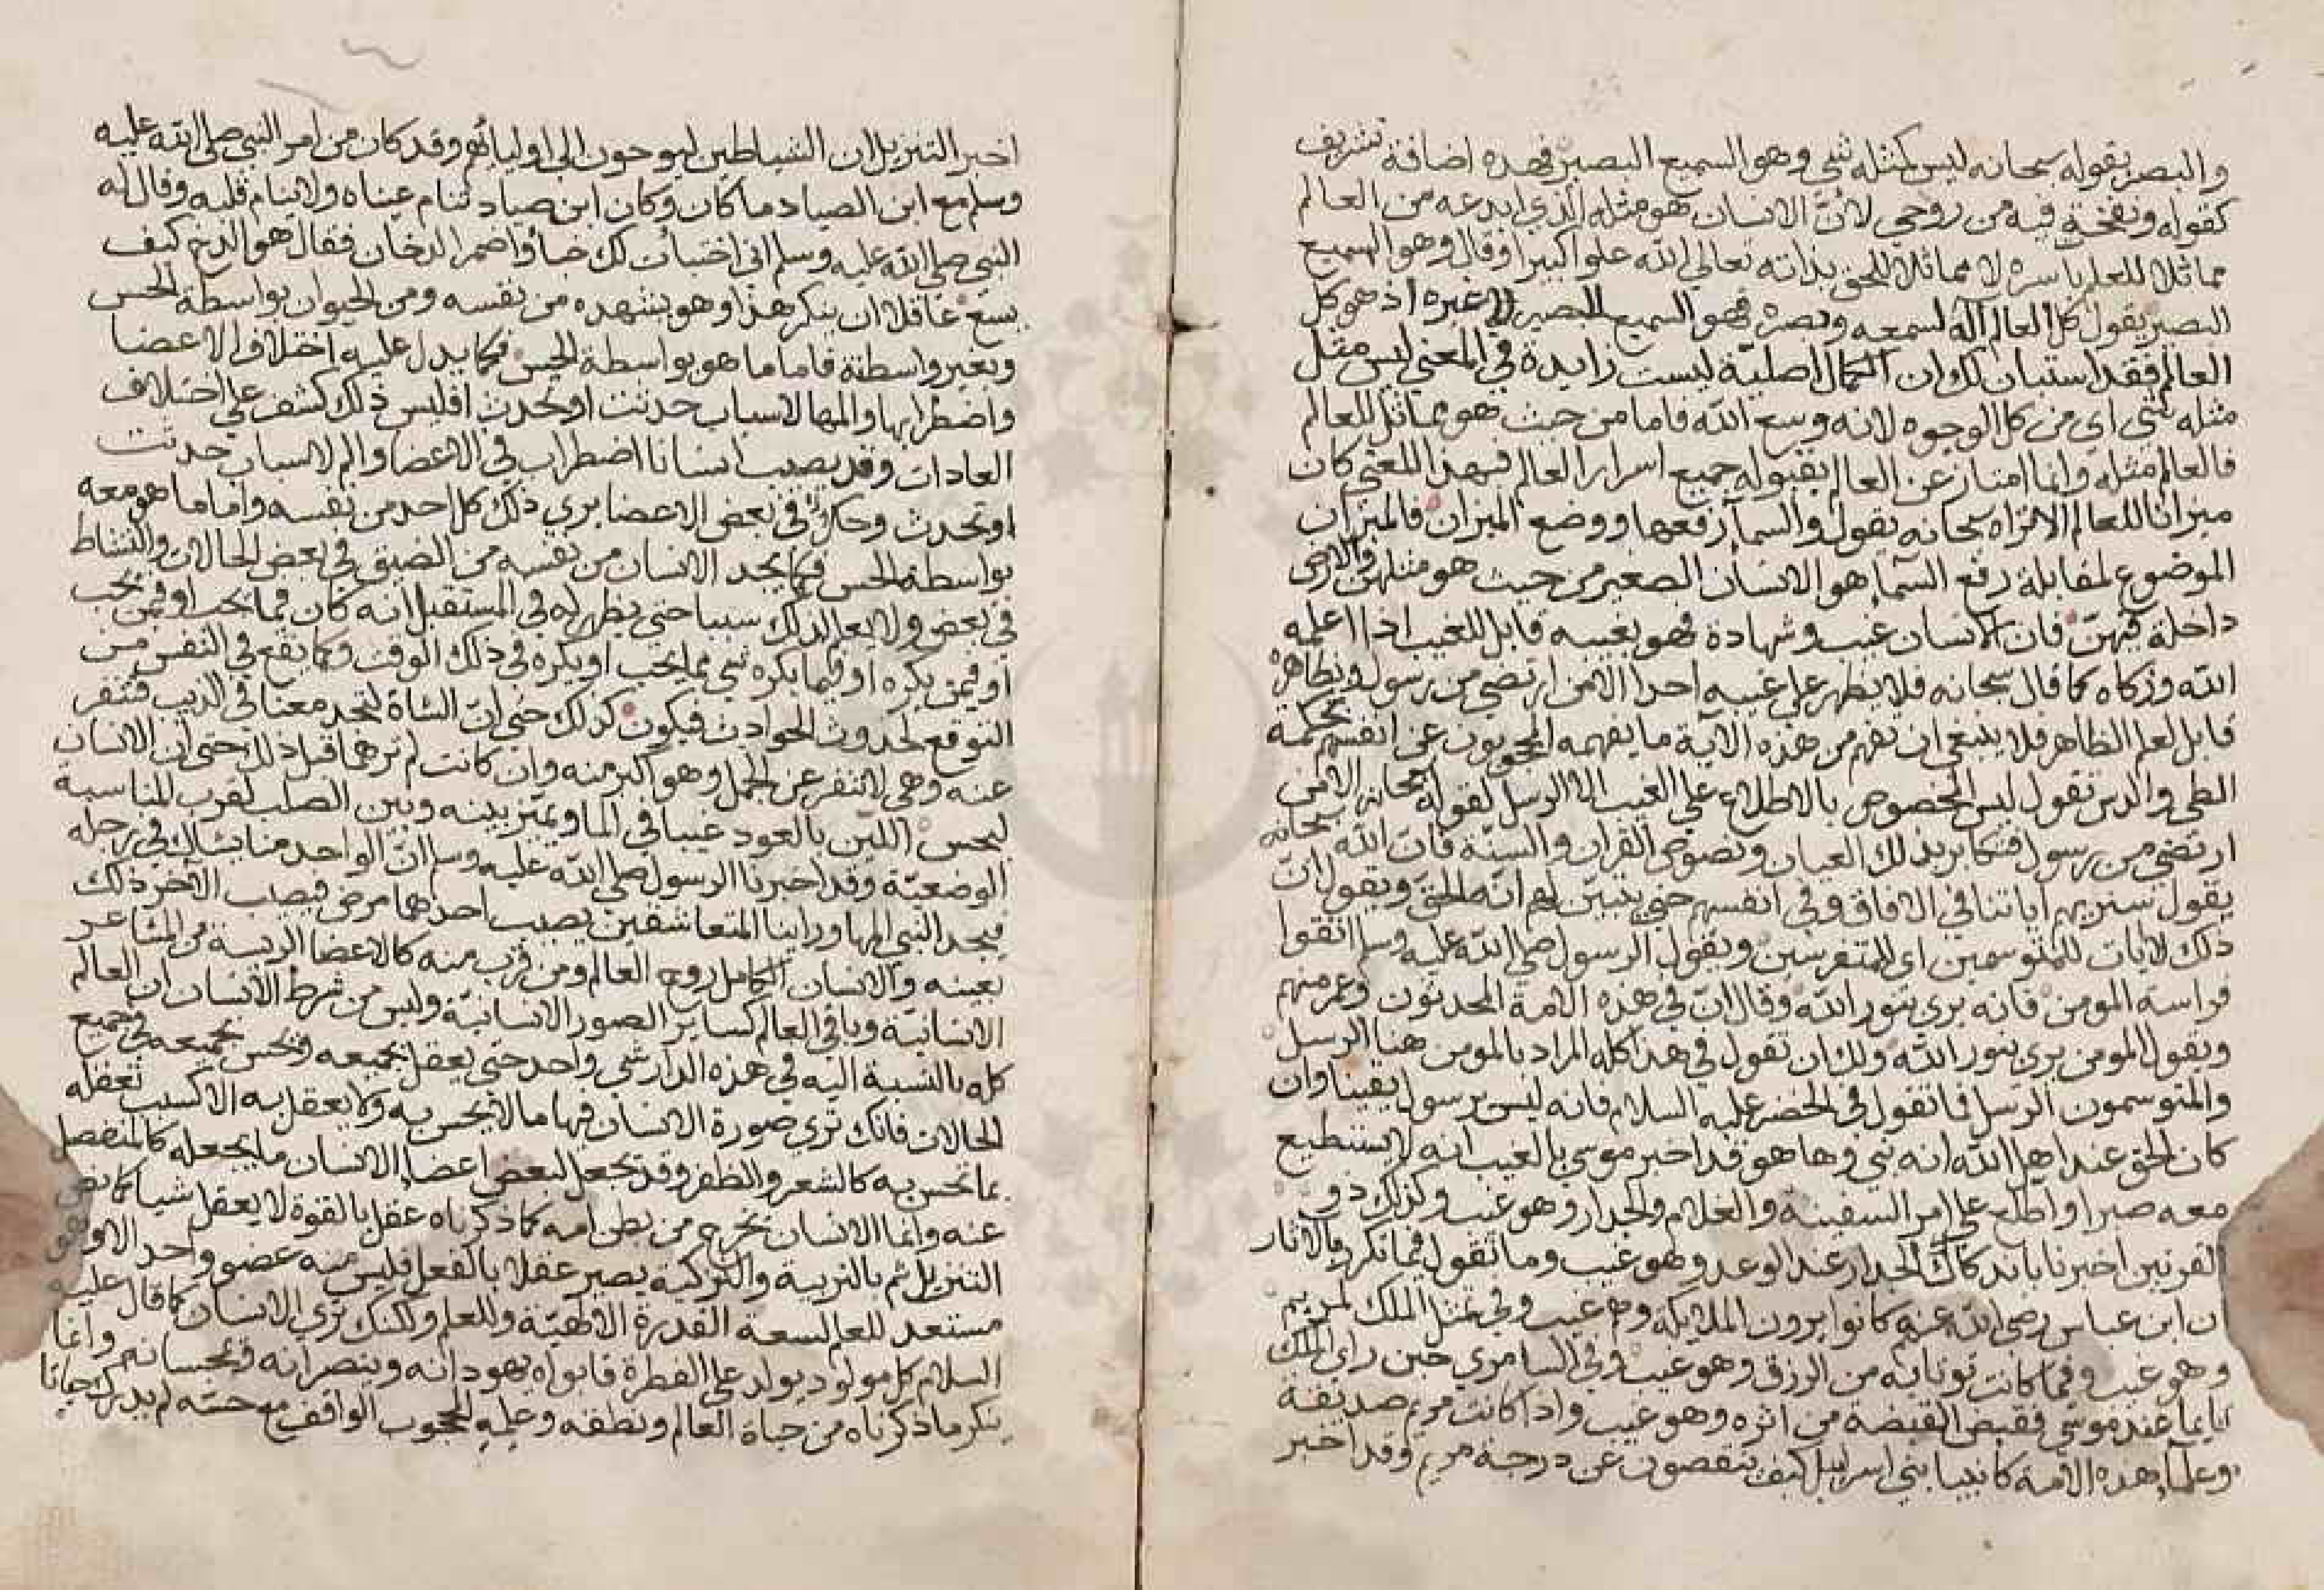 والبصر بقوله سبحانه ليس كمثله شي وهو السميع البصير فهذه اضافة تشريف
كقوله ونفخت فيه من روحي لانّ الانسان هو مثله الذي ابدعه من العالم
مماثلا للعلم باسره لا مماثلا للحق بذاته تعالي الله علوا كبيرا وقال وهو السميع
البصير يقول كل العالم آلة لسمعه وبصره فهو السميع البصير لا غيره اذ هي كل
العالم فقد استبان لك ان الكمال اصلية ليست زايدة في المعني ليس مثل
مثله شي اي من كل الوجوه لانه وسع الله فاما من حيث هو مماثل للعالم
فالعالم مثله وانما امتاز عن العالم بقبوله جميع اسرار العالم فبهذا المعني كان
ميزانا للعالم الا تراه سبحانه يقول والسمآ رفعها ووضع الميزان فالميزان
الموضوع لمقابلة رفع السمآ هو الانسان الصغير من حيث هو مثلهن والارض
داخلة فيهنّ فان الانسان غيب وشهادة فهو بغيبه قابل للغيب اذا اعلمه
الله وزكاه كما قال سبحانه فلا يظهر علي غيبه احدا الا من ارتضي من رسول وبظاهره
قابل لعلم الظاهر فلا ينبغي ان تفهم من هذه الآية ما يفهمه المحجوبون عن انفسهم بحكمة
الطي والدس تقول ليس المخصوص بالاطلاع علي الغيب الا الرسل لقوله سبحانه الا من
ارتضي من رسول فتكابر بذلك العيان ونصوص القران والسنّة فانّ الله سبحانه
يقول سنريهم اياتنا في الافاق وفي انفسهم حتي يتبيّن لهم انّه الحق ويقول انّ
ذلك لايات للمتوسمين اي للمتفرسين ويقول الرسول صلي الله عليه وسلم اتقوا
فراسة المومن فانه يري بنور الله وقال انّ في هذه الامة المحدثون وعمر منهم
ويقول المومن يري بنور الله ولك ان تقول في هذا كله المراد بالمومن هنا الرسل
والمتوسمون الرسل فما تقول في الخضر عليه السلام فانه ليس برسول يقينا وان
كان الحق عند اهل الله انه نبي وها هو قد اخبر موسي بالغيب انه لا يستطيع
معه صبرا واطلع علي امر السفينة والغلام والجدار وهو غيب وكذلك ذو
القرنين اخبرنا باندكاك الجدار عند الوعد وهو غيب وما تقول فيما تكرر الاثار
ان ابن عباس رضي الله عنه كانوا يرون الملايكة وهم غيب وفي تمثل الملك لمريم
وهو غيب وفيما كانت توتا به من الرزق وهو غيب وفي السامري حين راي الملك
عند موسي فقبض القبضة من اثره وهو غيب واذا كانت مريم صديقة
وعلمآ هذه الامة كانبيا بني اسرايل كيف ينقصون عن درجة مريم وقد اخبر
اخبر التنزيل ان الشياطين ليوحون الي اوليائهم وقد كان من امر النبي صلي الله عليه
وسلم مع ابن الصياد ما كان وكان ابن صياد تنام عيناه ولا ينام قلبه وقال له
النبي صلي الله عليه وسلم اني اختبات لك خبأ واضمر الدخان فقال هو الدخ كيف
يسع عاقلا ان ينكر هذا وهو يشهده من نفسه ومن الحيوان بواسطة الحس
وبغير واسطة فاما ما هو بواسطة الحس فكما يدل عليه اختلاف الاعضا
واضطرابها والمها لاسباب حدثت او تحدث افليس ذلك كشف علي اختلاف
العادات وقد يصيب انسانا اضطراب في الاعضا والم لاسباب حدثت
او تحدث وحكاك في بعض الاعضا يري ذلك كل احد من نفسه واما ما هو معه
بواسطة الحس فكما يجد الانسان من نفسه من الضيق في بعض الحالات والنشاط
في بعض ولا يعلم لذلك سببا حتي يظهر له في المستقبل انه كان فيما يحب او فيمن يحب
او فيمن يكره او فيما يكره شي مما يحب او يكره في ذلك الوقت وكما يقع في النفس من
التوقع لحدوث الحوادث فيكون كذلك حتي انّ الشاة لتجد معنا في الذيب فتنفر
عنه وهي لا تنفر عن الجمل وهو اكبر منه وان كانت لم ترهما قبل ذلك حتي ان الانسان
ليحس الليّن بالعود غيبا في الما ويميّز بينه وبين الصلب لقرب المناسبة
الوضعيّة وقد اخبرنا الرسول صلي الله عليه وسلم انّ الواحد منا يشاك في رجله
فيجد النبي المها وراينا المتعاشقين يصيب احدهما مرض فيصيب الآخر ذلك
بعينه والانسان الكامل روح العالم ومن قرب منه كالاعضا الريسة من المشاعر
الانسانيّة وباقي العالم كساير الصور الانسانيّة وليس من شرط الانسان ان العالم
كله بالنسبة اليه في هذه الدار شي واحد حتي يعقل بجميعه ويحس بجميعه في جميع
الحالات فانك تري صورة الانسان فيها ما لا يحس به وكما يعقل به الا كسب تعقله
بما تحس به كالشعر والظفر وقد تجعل لبعض اعضا الانسان ما يجعله كالمنفصل
عنه وانما الانسان يخرج من بطن امه كما ذكرناه عقل بالقوة لا يعقل شيا كما نص
التنزيل ثم بالتربية والتزكية يصير عقلا بالفعل فليس منه عضو واحد الا وهو
مستعد للعلم لسعة القدرة الالهيّة وللعلم ولكنك تري الانسان كما قال عليه
السلام كل مولود يولد علي الفطرة فابواه يهودانه وينصرانه ويمجسانه وانما
ينكر ما ذكرناه من حياة العالم ونطقه وعلمه المحجوب الواقف مع حسّه لم يدرك حياتا